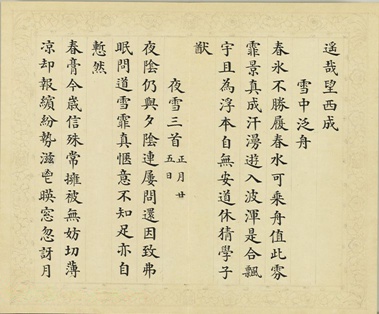 遙哉望西成
雪中泛舟
春氷不勝履春水可乘舟值此雰
霏景真成汗漫遊入波渾是合飄
宇且為浮本自無安道休猜學子
猷
夜雪三首 正月廿五日
夜陰仍與夕陰連屢問還因致弗
眠問道雪霏真愜意不知足亦自
慙然
春膏今歲信殊常擁被無妨切薄
凉却報繽紛勢滋暎窓忽訝月